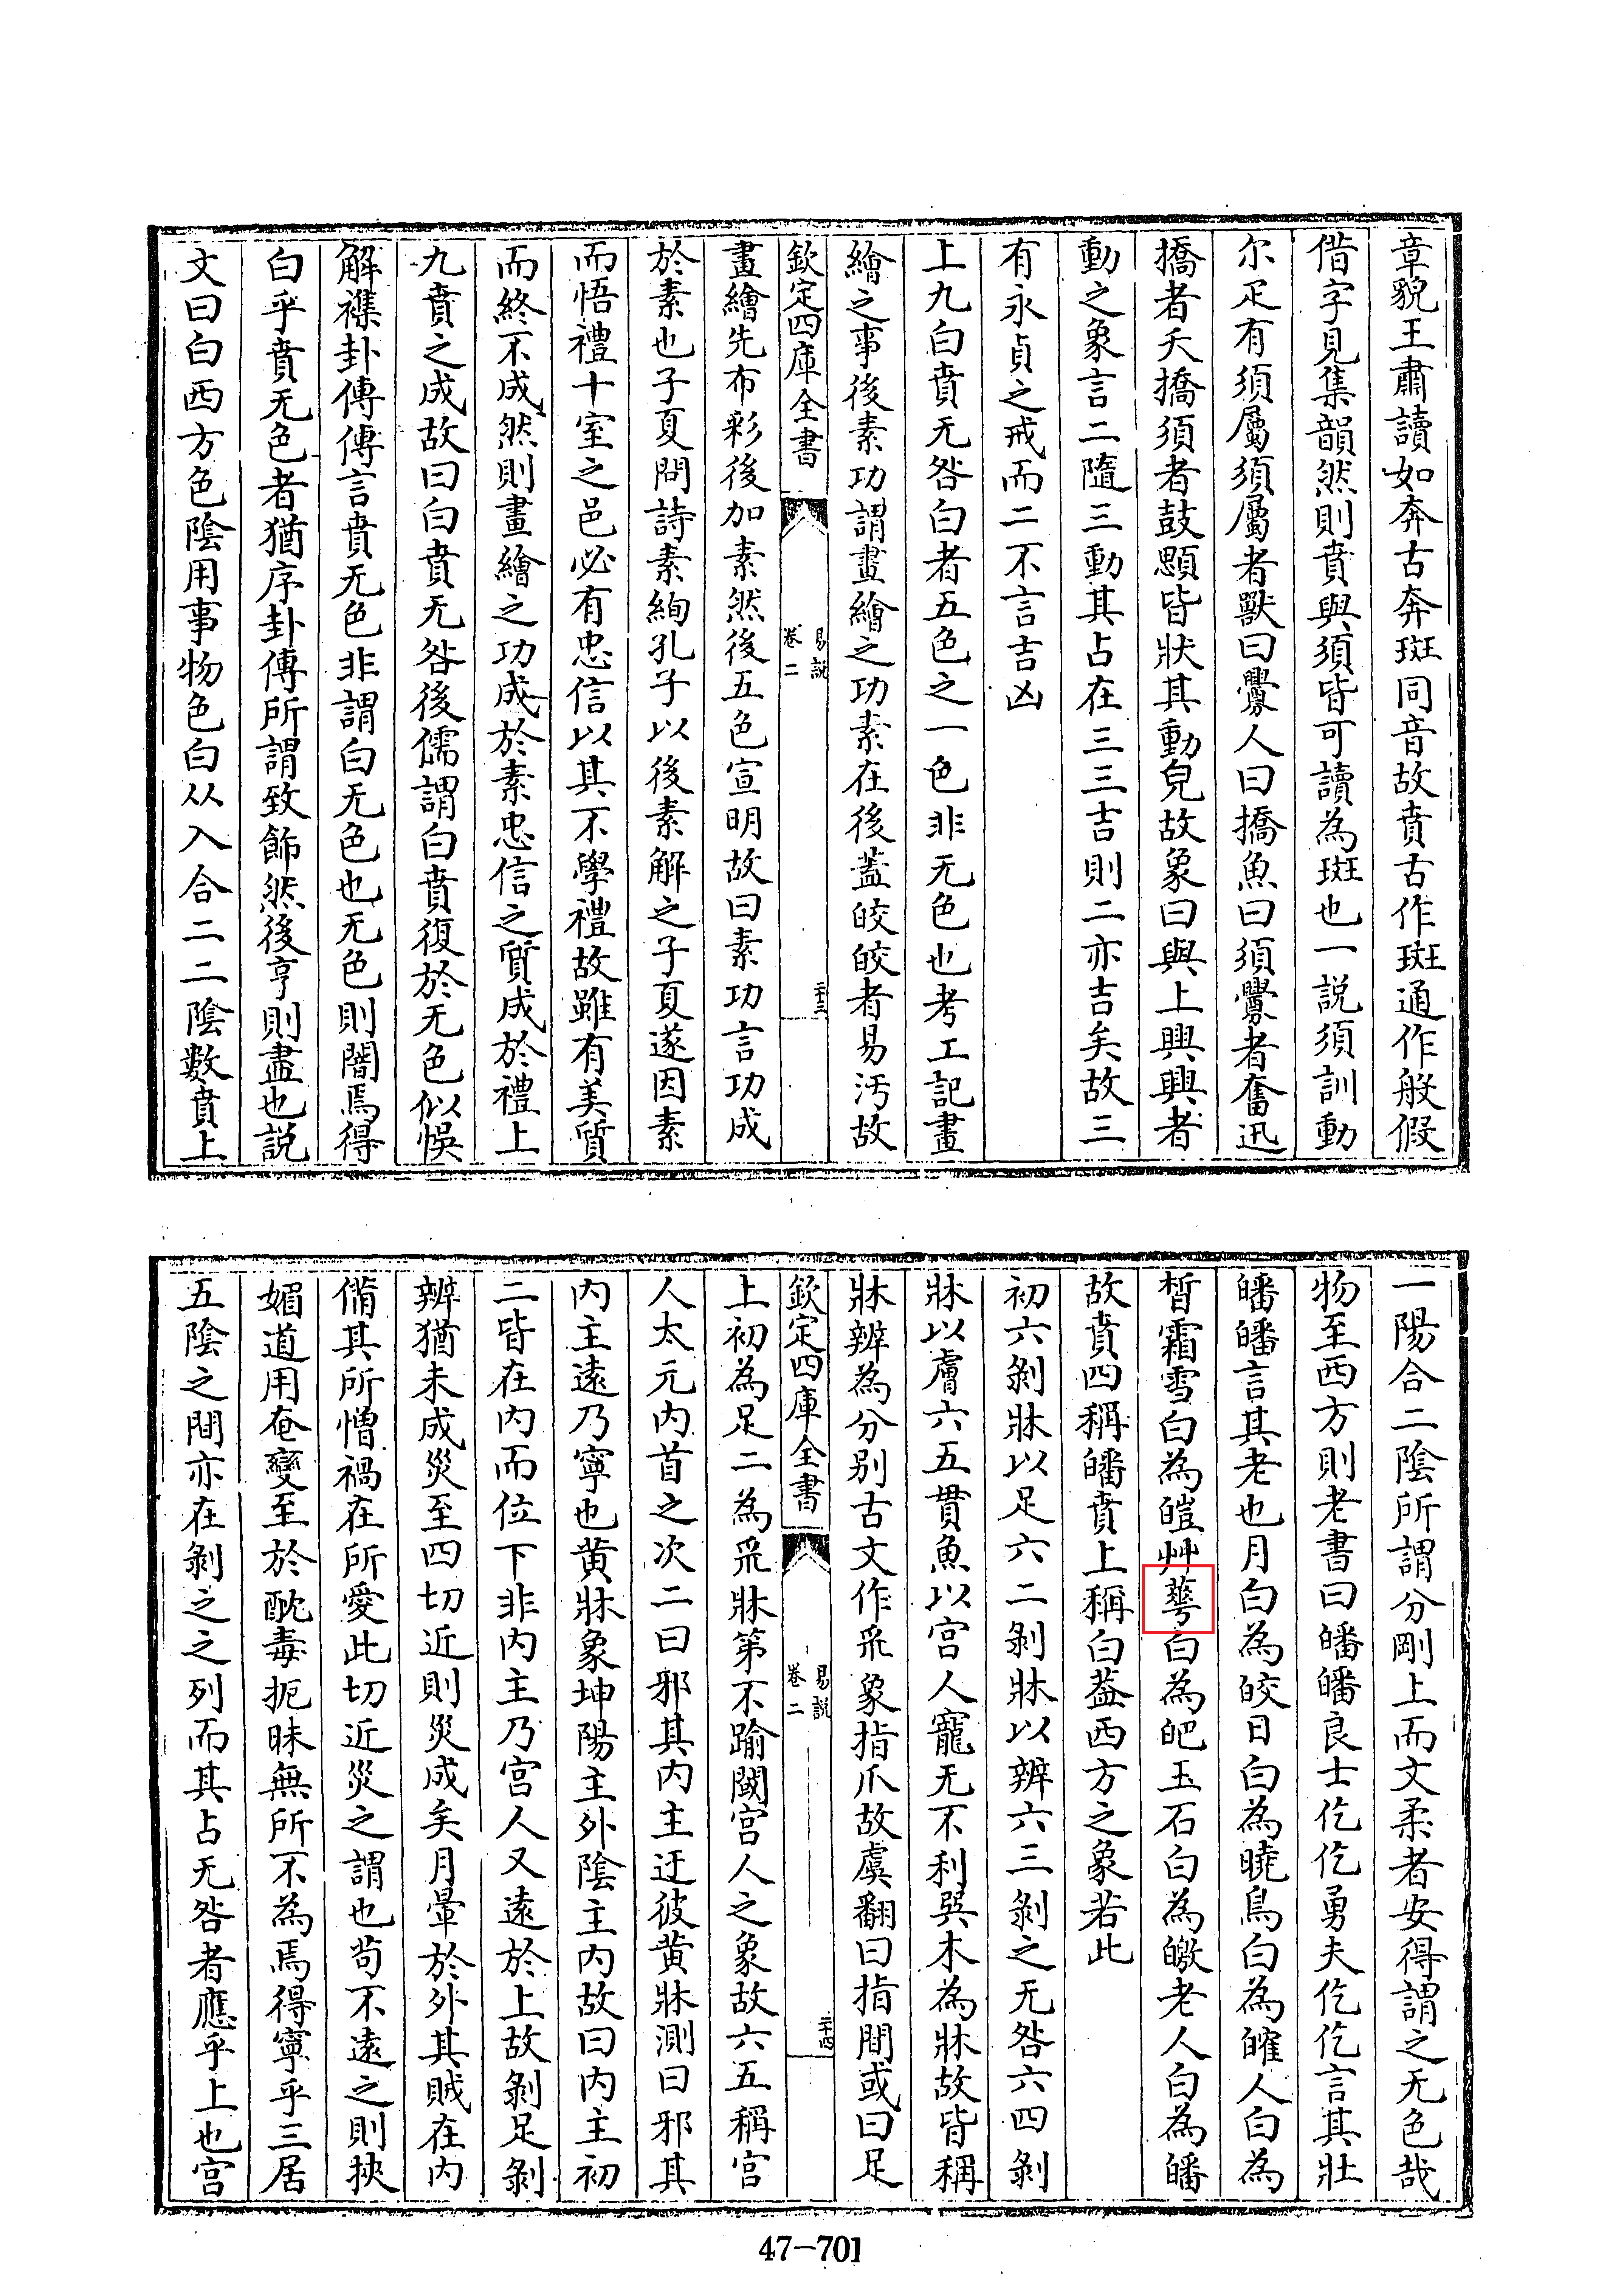 章貌王肅讀如奔古奔斑同音故賁古作斑通作般假
借字見集韻然則賁與須皆可讀為斑也一説須訓動
尔疋有須屬須屬者獸曰釁人曰撟魚曰須釁者奮迅
撟者夭撟須者鼓顋皆狀其動皃故象曰與上興興者
動之象言二隨三動其占在三三吉則二亦吉矣故三
有永貞之戒而二不言吉凶
上九白賁无咎白者五色之一色非无色也考工記畫
繪之事後素功謂畫繪之功素在後葢皎皎者易汚故
欽定四庫全書
易説
卷二
二十三
畫繪先布彩後加素然後五色宣明故曰素功言功成
於素也子夏問詩素絢孔子以後素解之子夏遂因素
而悟禮十室之邑必有忠信以其不學禮故雖有美質
而終不成然則畫繪之功成於素忠信之質成於禮上
九賁之成故曰白賁无咎後儒謂白賁復於无色似悞
解襍卦傳傳言賁无色非謂白无色也无色則闇焉得
白乎賁无色者猶序卦傳所謂致飾然後亨則盡也説
文曰白西方色陰用事物色白从入合二二陰數賁上
一陽合二陰所謂分剛上而文柔者安得謂之无色哉
物至西方則老書曰皤皤良士仡仡勇夫仡仡言其壯
皤皤言其老也月白為皎日白為曉鳥白為皠人白為
皙霜雪白為皚艸蕚白為皅玉石白為皦老人白為皤
故賁四稱皤賁上稱白葢西方之象若此
初六剝牀以足六二剝牀以辨六三剝之无咎六四剝
牀以膚六五貫魚以宫人寵无不利巽木為牀故皆稱
牀辨為分别古文作釆象指爪故虞翻曰指間或曰足
欽定四庫全書
易説
卷二
二十四
上初為足二為釆牀第不踰閾宫人之象故六五稱宫
人太元内首之次二曰邪其内主迂彼黄牀測曰邪其
内主遠乃寧也黄牀象坤陽主外陰主内故曰内主初
二皆在内而位下非内主乃宫人又遠於上故剝足剝
辨猶未成災至四切近則災成矣月暈於外其賊在内
備其所憎禍在所愛此切近災之謂也茍不遠之則挾
媚道用奄變至於酖毒扼昧無所不為焉得寧乎三居
五陰之間亦在剝之之列而其占无咎者應乎上也宫
47-701